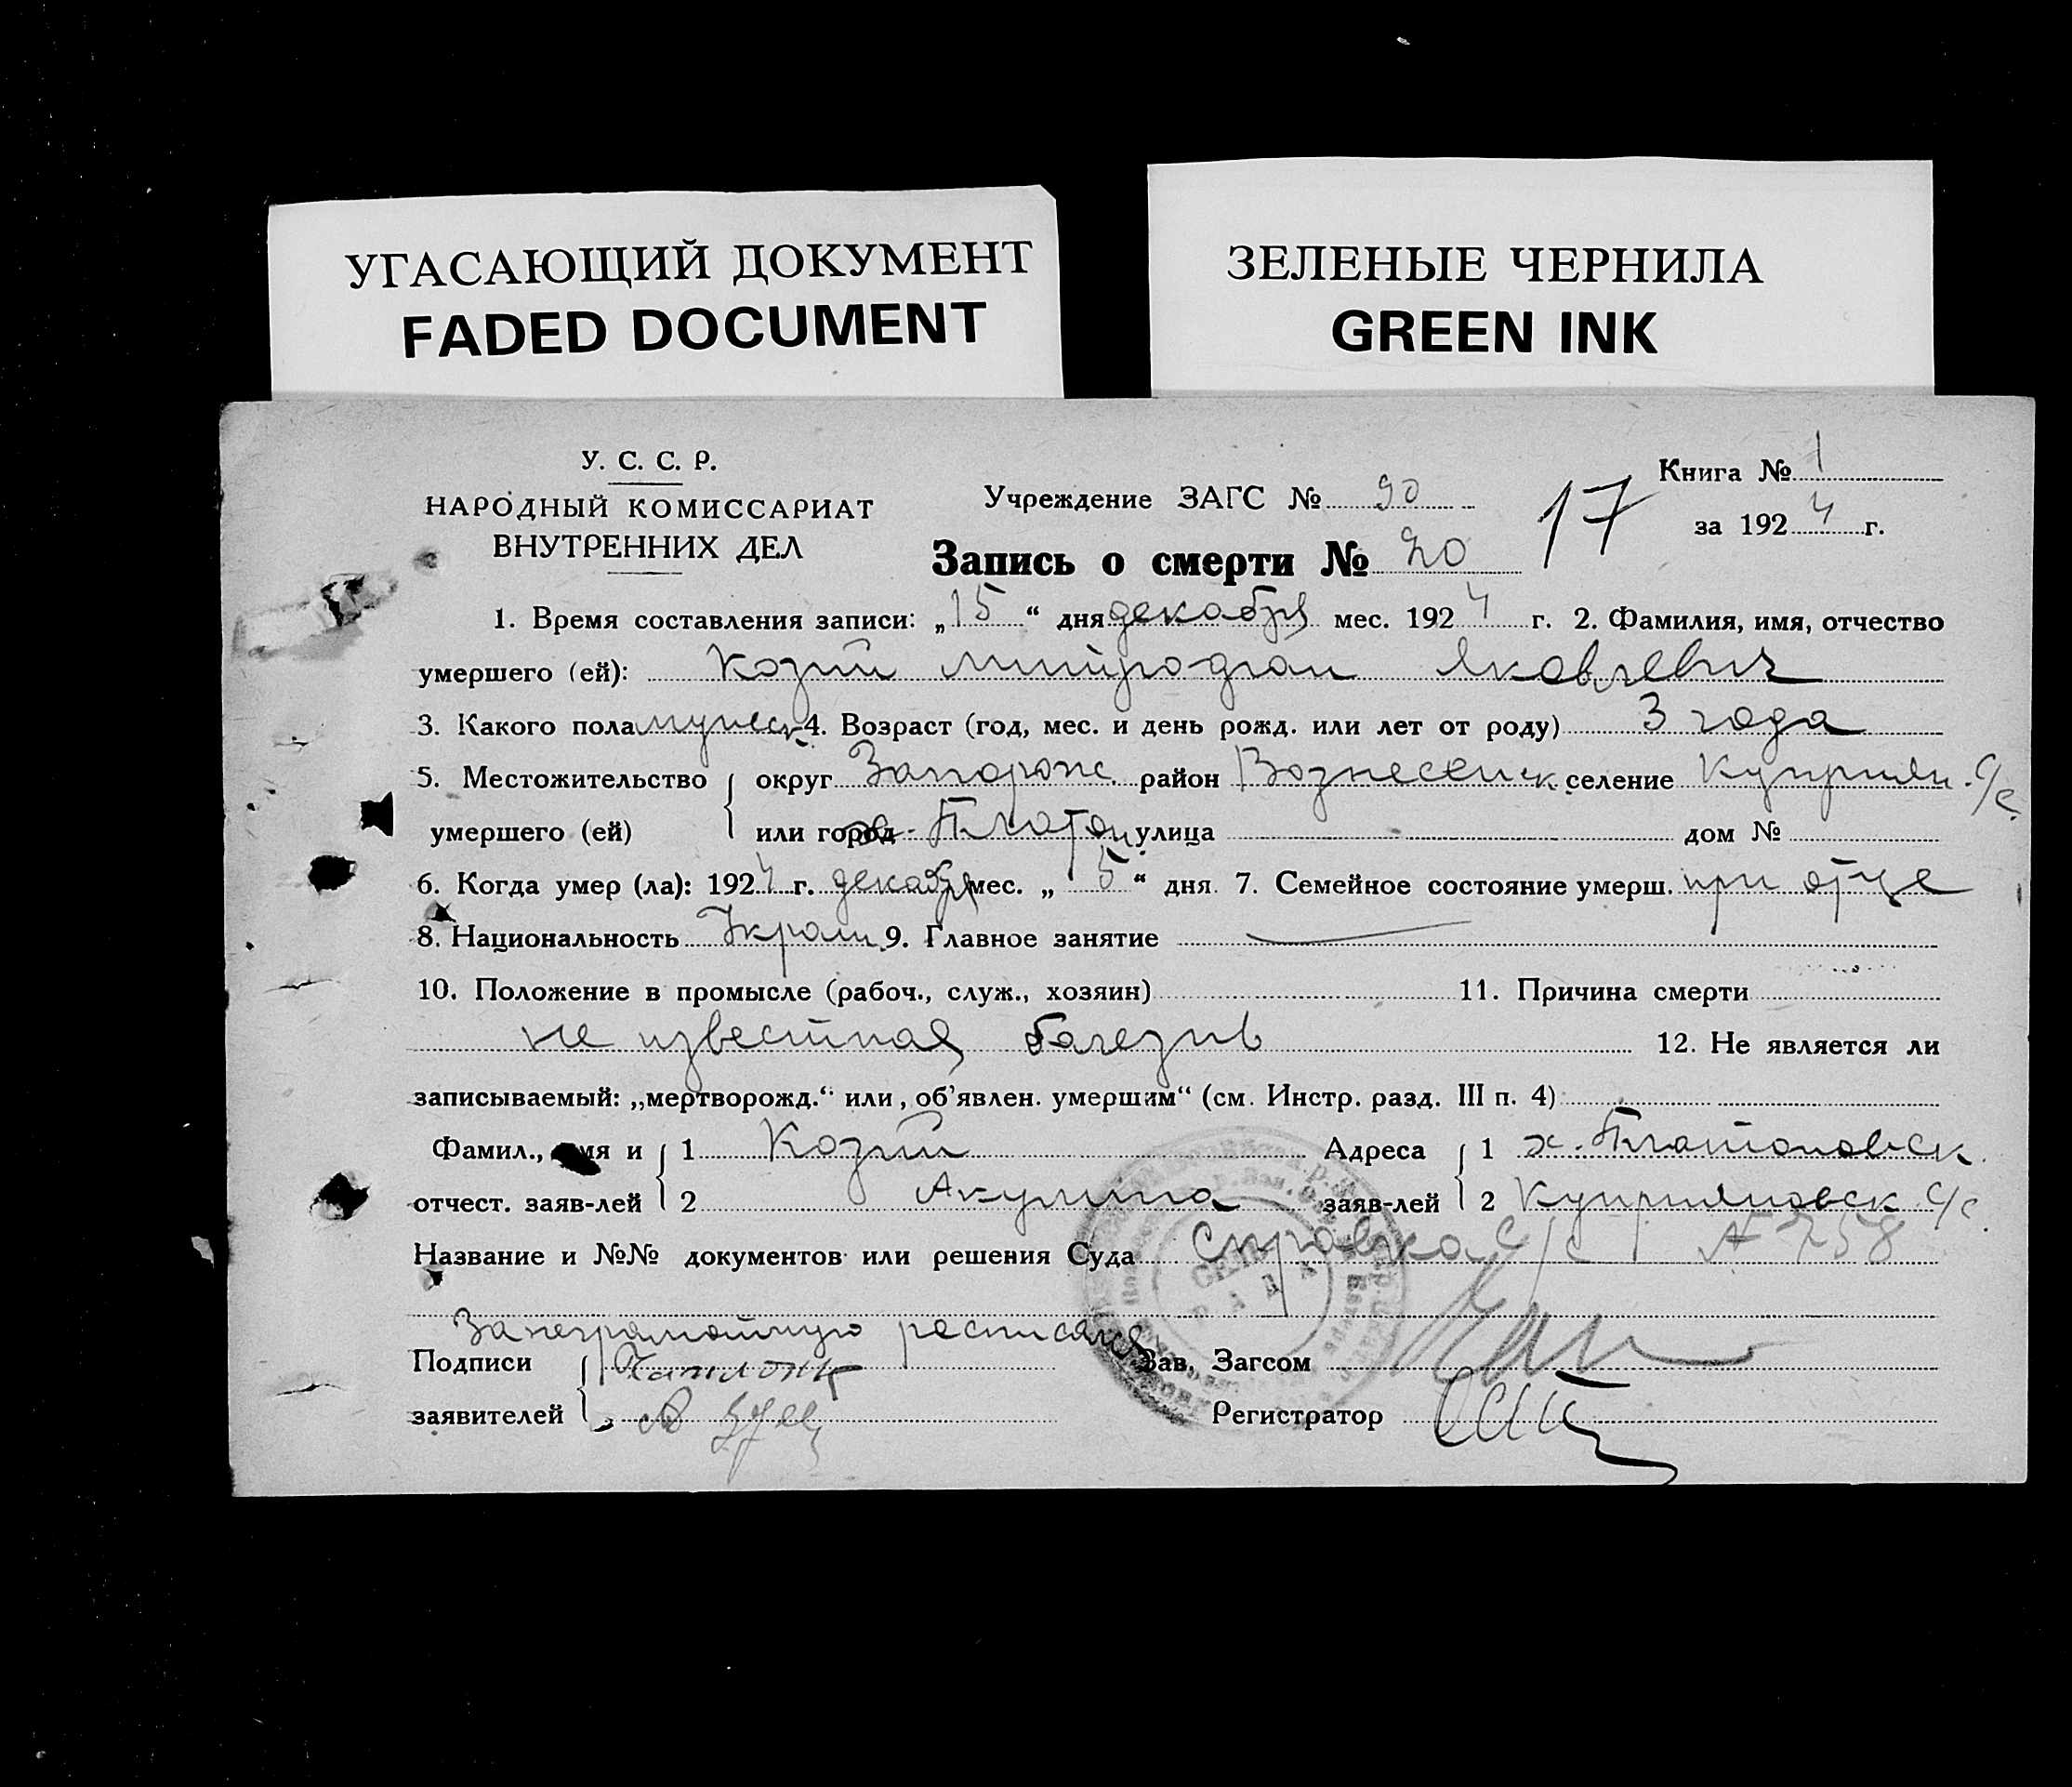 УГАСАЮЩИЙ ДОКУМЕНТ
FADED DOCUMENT
ЗЕЛЕНЫЕ ЧЕРНИЛА
GREEN INK
У. С. С. Р.
НАРОДНЫЙ КОМИССАРИАТ
ВНУТРЕННИХ ДЕЛ
Учреждение ЗАГС № 90
17
Книга № 1
за 1924 г.
Запись о смерти № 20
1. Время составления записи: „15“ дня декабря мес. 1924 г. 2. Фамилия, имя, отчество
умершего (ей): Козий Митродган Яковлевич
3. Какого пола мужск 4. Возраст (год, мес. и день рожд. или лет от роду) 3 года
5. Местожительство умершего (ей) округ Запорож. район Вознесенск селение Куприян. с/с.
или город х. Платон улица — дом №
6. Когда умер (ла): 1924 г. декабря мес. „5“ дня 7. Семейное состояние умерш. при отце
8. Национальность Украин. 9. Главное занятие —
10. Положение в промысле (рабоч., служ., хозяин) 11. Причина смерти
не известная болезнь 12. Не является ли
записываемый: „мертворожд.“ или „об'явлен. умершим“ (см. Инстр. разд. III п. 4)
Фамил., имя и отчест. заяв-лей 1 Козий Адреса заяв-лей 1 х. Платоновск.
2 Акулина 2 Куприяновск с/с.
Название и №№ документов или решения Суда Справка с/с № 758
За неграмотную росписался
Подписи заявителей
Зав. Загсом
Регистратор